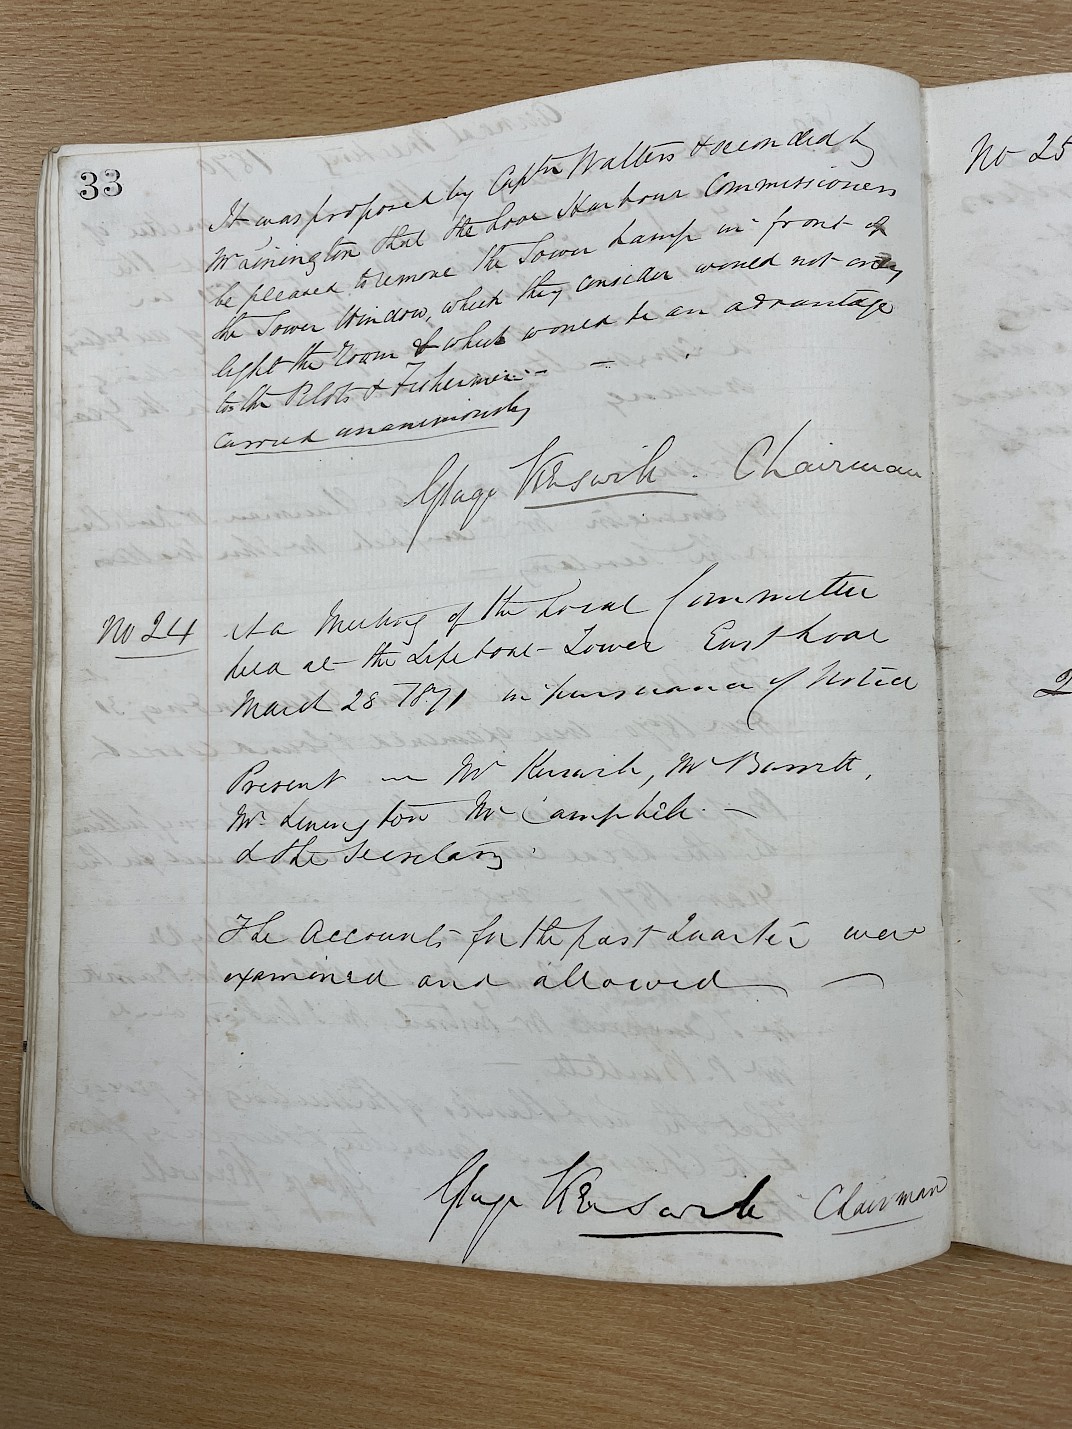 33
It was proposed by Captn Walters & seconded by
Mr Linington that the Looe Harbour Commissioners
be pleased to remove the Tower Lamp in front of
the Tower Window, which they consider would not only
light the Room & which would be an advantage
to the Pilots & Fishermen –
carried unanimously
Keswick Chairman
No 24
At a Meeting of the Local Committee
held at the Lifeboat Tower East Looe
March 28 1871 in pursuance of Notice
Present – Mr Keswick, Mr Barrett,
Mr Linington Mr Campbell –
& the Secretary.
The Accounts for the past Quarter were
examined and allowed —
Keswick Chairman
No 25